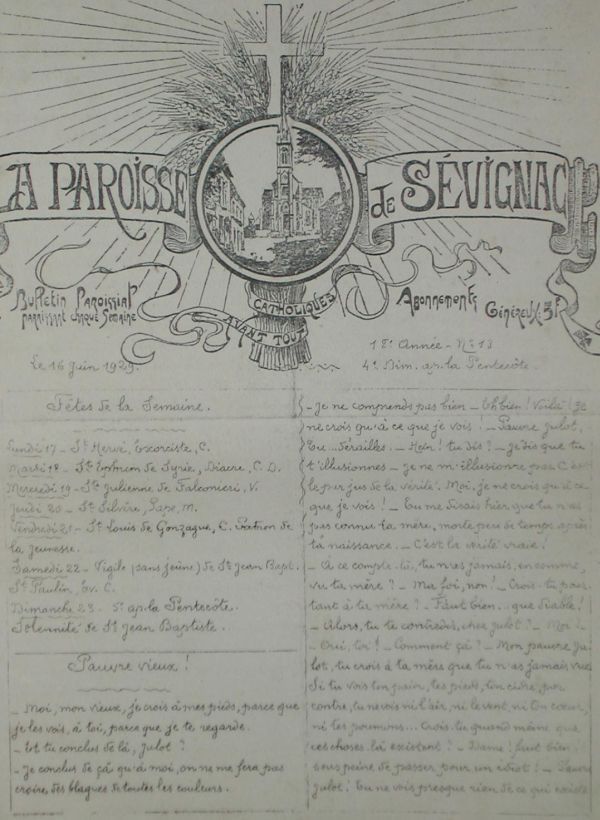 LA PAROISSE
de SÉVIGNAC
Bulletin Paroissial
paraissant chaque semaine
CATHOLIQUES
AVANT TOUT
Abonnements
Généreux: 3F
Le 16 Juin 1929.
18e Année - No 13
4e Dim. ap. la Pentecôte.
Fêtes de la Semaine.
Lundi 17 - St Hervé, Exorciste, C.
Mardi 18 - St Ephrem de Syrie, Diacre, C. D.
Mercredi 19 - Ste Julienne de Falconieri, V.
Jeudi 20 - St Silvère, Pape, M.
Vendredi 21 - St Louis de Gonzague, C. Patron de
la Jeunesse.
Samedi 22 - Vigile (sans jeûne) de St Jean Bapt.
St Paulin, Ev. C.
Dimanche 23 - 5e ap. la Pentecôte.
Solennité de St Jean Baptiste.
Pauvre vieux !
- Moi, mon vieux, je crois à mes pieds, parce que
je les vois, à toi, parce que je te regarde.
- Et tu conclus de là, Julot ?
- Je conclus de ça qu'à moi, on ne me fera pas
croire des blagues de toutes les couleurs.
- Je ne comprends pas bien - Eh bien ! Voilà je
ne crois qu'à ce que je vois ! - Pauvre Julot,
tu... dérailles. - Hein ! tu dis ? - Je dis que tu
t'illusionnes - Je ne m'illusionne pas. C'est
le pur jus de la vérité. Moi, je ne crois qu'à ce
que je vois ! - Tu me disais hier, que tu n'as
pas connu ta mère, morte peu de temps après
ta naissance. - C'est la vérité vraie !
- A ce compte-là, tu n'as jamais, en somme,
vu ta mère ? - Ma foi, non ! - Crois-tu pour
tant à ta mère ? - Faut bien... que diable !
- Alors, tu te contredis, cher Julot ? - Moi ?
- Oui, toi ! - Comment ça ? - Mon pauvre Ju
lot, tu crois à ta mère que tu n'as jamais vue
Si tu vois ton pain, tes pieds, ton cidre, par
contre, tu ne vois ni l'air, ni le vent, ni ton cœur,
ni tes poumons... Crois-tu quand même que
ces choses-là existent ? - Dame ! faut bien
sous peine de passer pour un idiot ! - Pauvre
Julot ! tu ne vois presque rien de ce qui existe